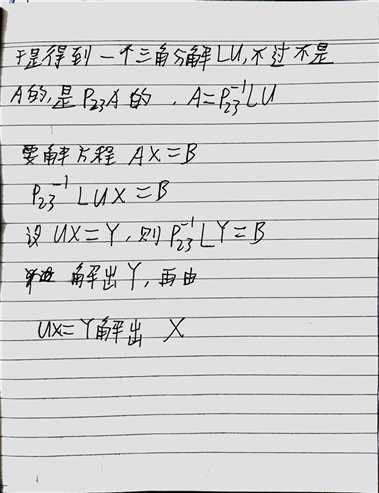 于是得到一个三角分解LU,不过不是
A的,是P₂₃A的. A=P₂₃⁻¹LU
要解方程 AX=B
P₂₃⁻¹LUX=B
设UX=Y,则P₂₃⁻¹LY=B
解出Y,再由
UX=Y解出 X